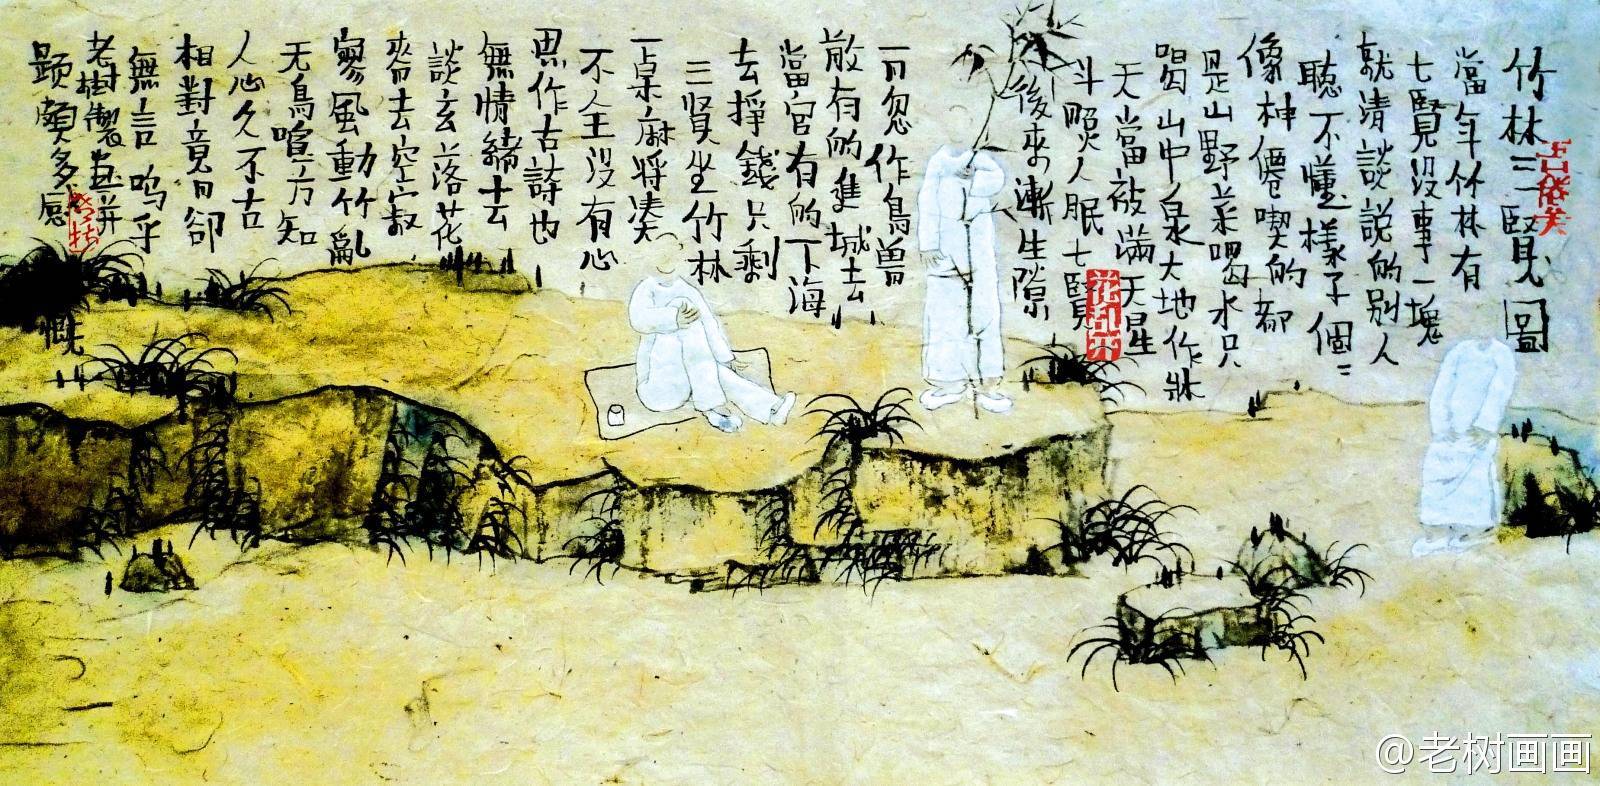 竹林三賢圖
當年竹林有
七賢没事一塊
就清談説的别人
聽不懂樣子個〻
像神僊喫的都
是山野菜喝水只
喝山中泉大地作牀
天當被滿天星
斗照人眠七賢
後來漸生隙
一日忽作鳥獸
散有的進城去
當官有的下海
去掙錢只剩
三賢坐竹林
一桌麻将湊
不全没有心
思作古詩也
無情緒去
談玄落花
來去空寂
寥風動竹亂
无鳥喧方知
人心久不古
相對竟日卻
無言嗚乎
老樹製畫并
题頗多感
慨
花乱开
@老树画画